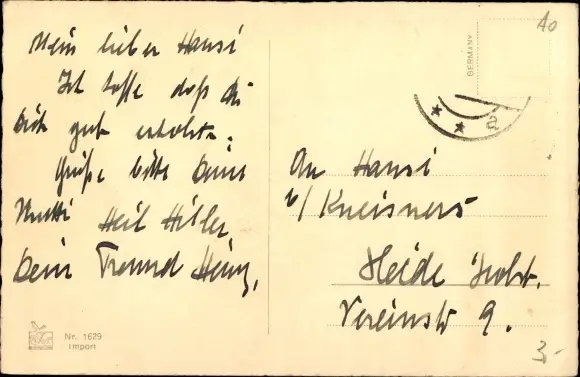 Mein lieber Hansi
Ich hoffe daß du
dich gut erholst.
Grüße bitte Deine
Mutti Heil Hitler
Dein Freund Heinz,
Nr. 1629
Import
An Hansi
b/ Kneisners
Heide Holst.
Vereinstr 9.
GERMANY
a
40
3,-